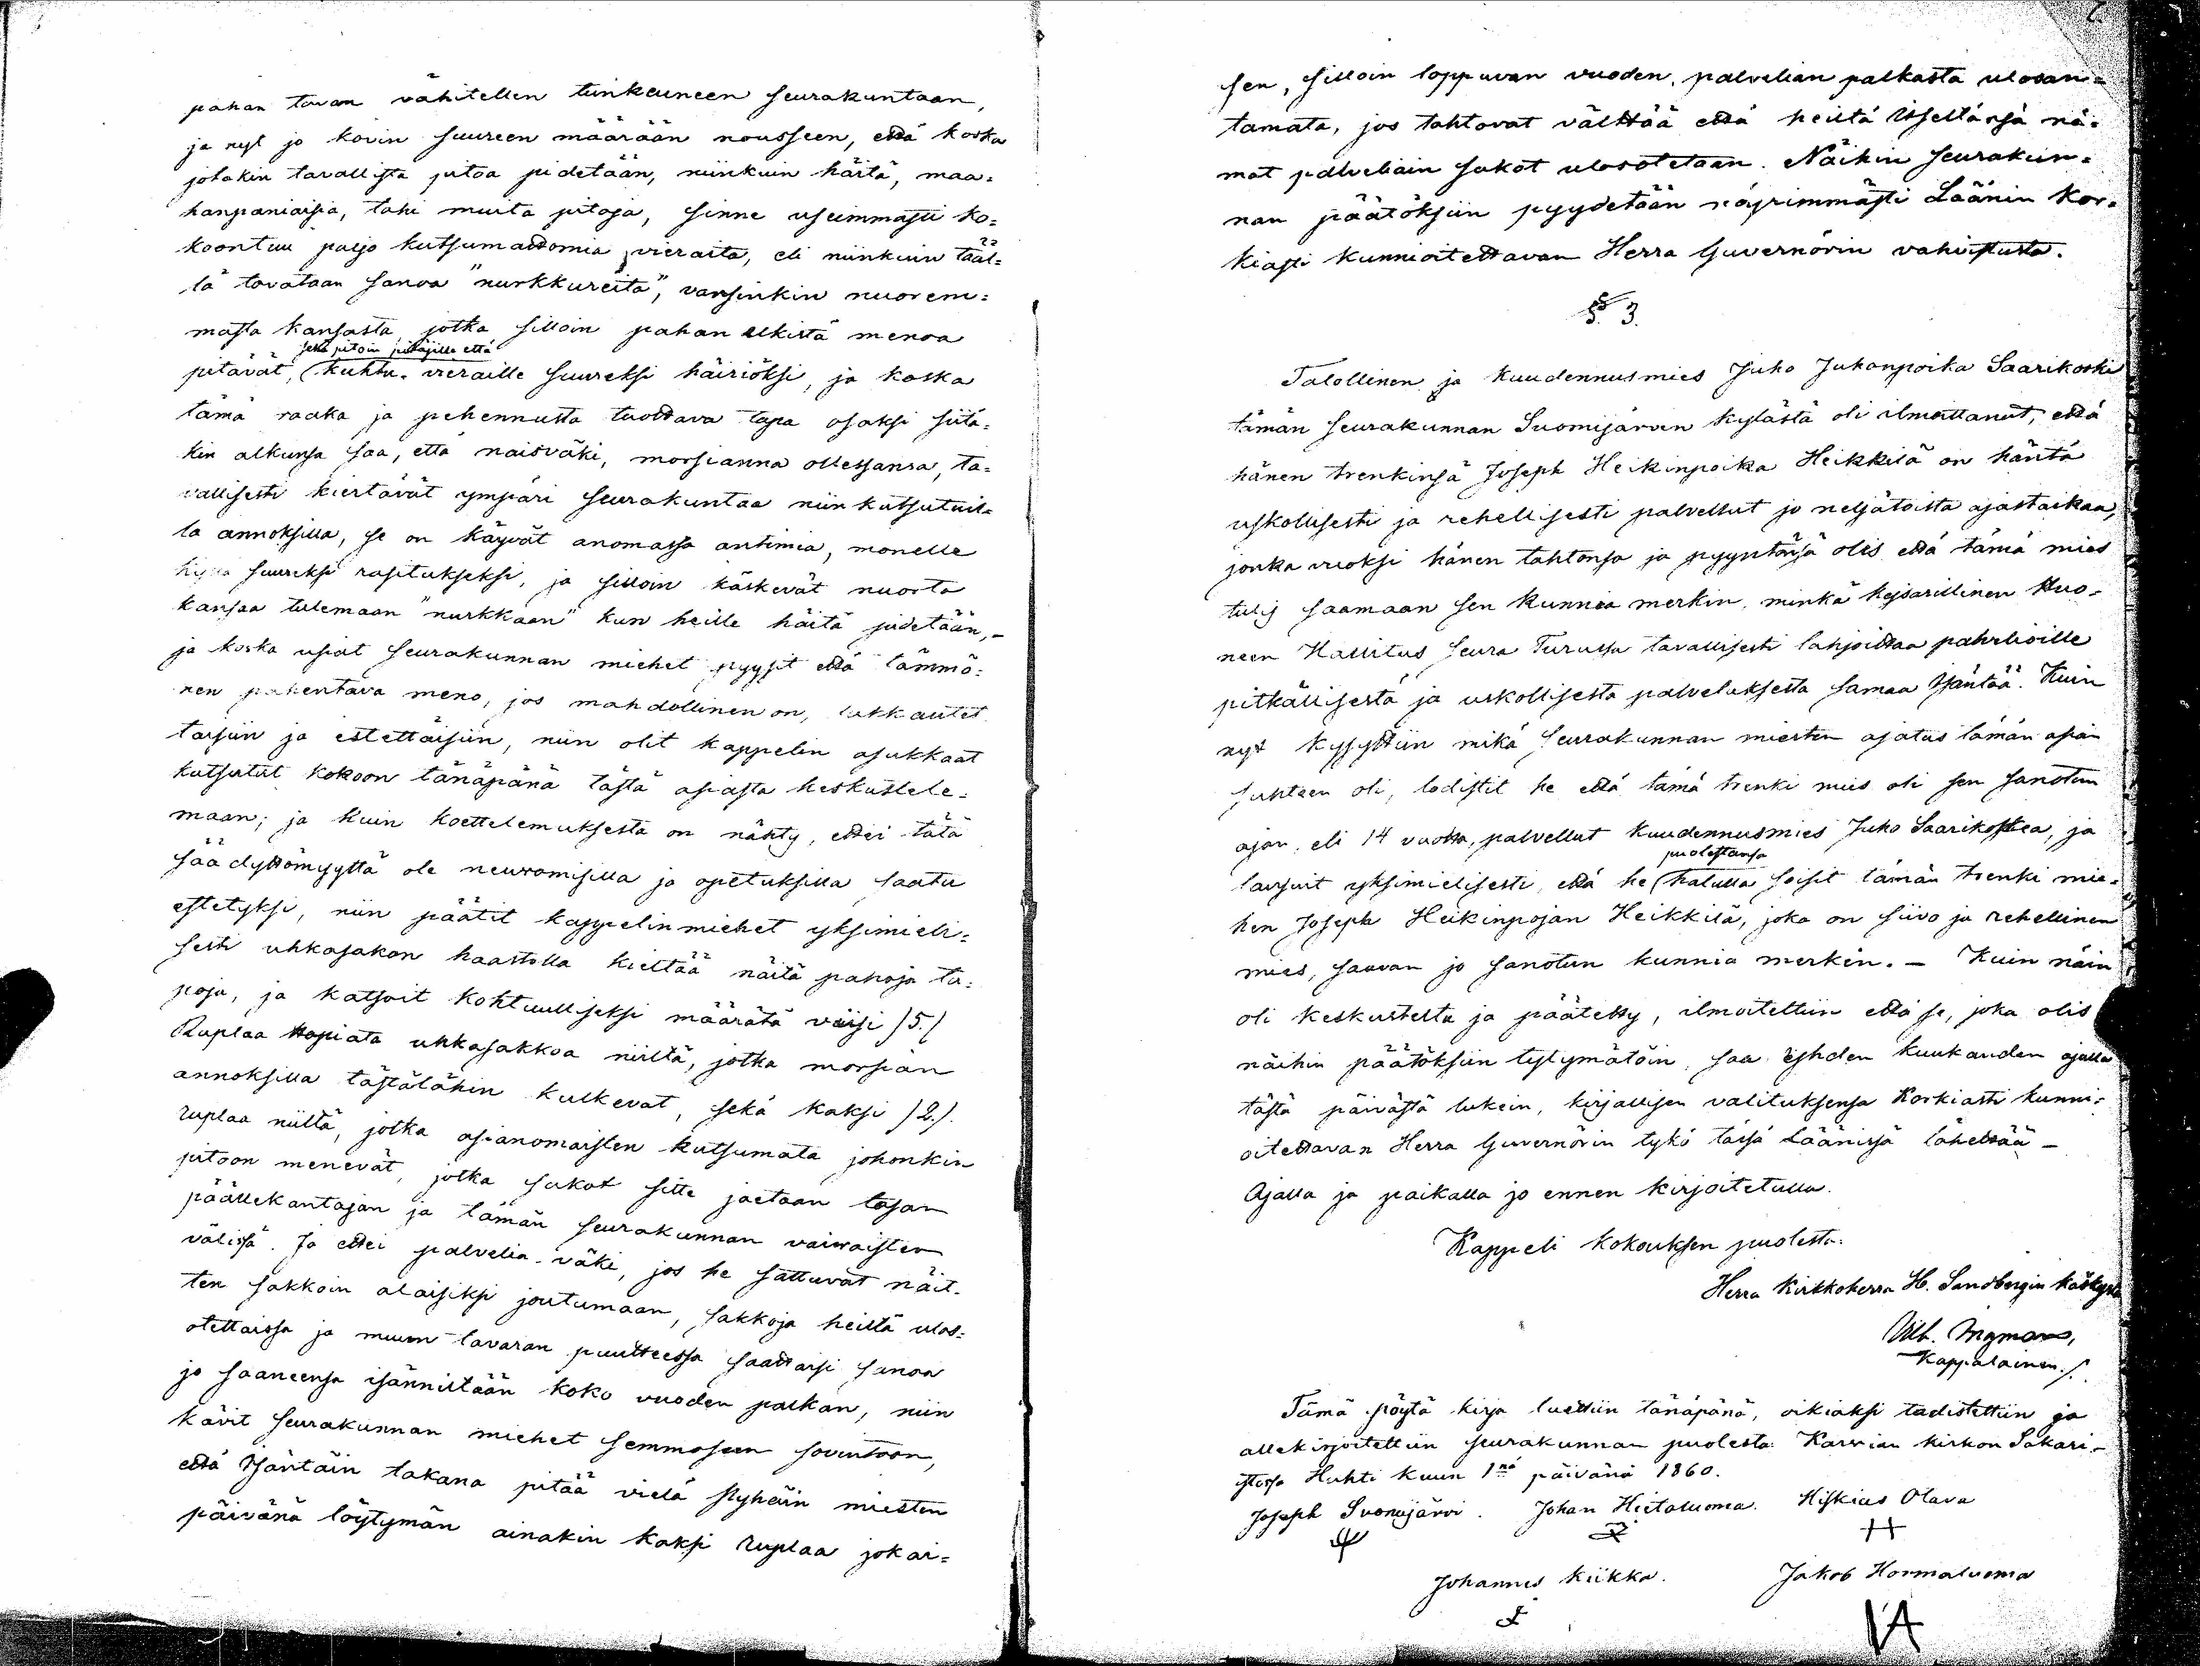 pahan tavan vähitellen tunkeuneen seurakuntaan,
ja nyt jo kovin suureen määrään nousseen, että koska
jotakin tavallista pitoa pidetään, niinkuin häitä, maa=
hanpaniaisia, tahi muita pitoja, sinne useimmasti ko=
koontuu paljo kutsumattomia vieraita, eli niinkuin tääl=
lä tavataan sanoa "nurkkureita", varsinkin nuorem=
masta kansasta jotka silloin pahan elkistä menoa
sekä pitoin pitäjille että
pitävät, kuhtu-vieraille suureksi häiriöksi, ja koska
tämä raaka ja pehennusta tuottava tapa osaksi siitä=
kin alkunsa saa, että naisväki, morsianna ollessansa, ta=
vallisesti kiertävät ympäri seurakuntaa niin kutsutuil=
la annoksilla, se on käyvät anomassa antimia, monelle
hyvin suureksi rasitukseksi, ja silloin käskevät nuorta
kansaa tulemaan "nurkkaan" kun heille häitä pidetään,-
ja koska usiat seurakunnan miehet pyysit että tämmö=
nen pahentava meno, jos mahdollinen on, lakkautet
taisiin ja estettäisiin, niin olit kappelin asukkaat
kutsutut kokoon tänäpänä tästä asiasta keskustele=
maan; ja kuin koettelemuksesta on nähty, ettei tätä
säädyttömyyttä ole neuvomisilla ja opetuksilla saatu
estetyksi, niin päätit kappelin miehet yksimieli=
sesti uhkasakon haastolla kieltää näitä pahoja ta=
poja, ja katsoit kohtuulliseksi määrätä viisi /5./
Ruplaa Hopiata uhkasakkoa niiltä, jotka morsian
annoksilla tästälähin kulkevat, sekä kaksi /2./.
ruplaa niiltä, jotka asianomaisten kutsumata johonkin
pitoon menevät, jotka sakot sitte jaetaan tasan
päällekantajan ja tämän seurakunnan vaivaisten
välissä. Ja ettei palvelia-väki, jos he sattuvat näit=
ten sakkoin alaisiksi joutumaan, sakkoja heiltä ulos=
otettaissa ja muun tavaran puutteessa saattaisi sanoa
jo saaneensa isänniltään koko vuoden palkan, niin
kävit seurakunnan miehet semmoseen sovintoon,
että Isäntäin takana pitää vielä Pyhäin miesten
päivänä löytymän ainakin kaksi ruplaa jokai=
sen, silloin loppuvan vuoden, palvelian palkasta ulosan=
tamata, jos tahtovat välttää että heiltä itseltänsä nä=
mat palveliain sakot ulosotetaan. Näihin seurakun=
nan päätöksiin pyydetään nöyrimmästi Läänin Kor=
kiasti Kunnioitettavan Herra Guvernörin vahvistusta.
§. 3.
Talollinen ja kuudennusmies Juho Juhanpoika Saarikoski
tämän seurakunnan Suomijärven kylästä oli ilmoittanut, että
hänen trenkinsä Joseph Heikinpoika Heikkilä on häntä
uskollisesti ja rehellisesti palvellut jo neljätoista ajastaikaa,
jonka vuoksi hänen tahtonsa ja pyyntönsä olis että tämä mies
tulis saamaan sen kunnia merkin, minkä Keisarillinen Huo=
neen Hallitus seura Turussa tavallisesti lahjoittaa palvelioille
pitkällisestä ja uskollisesta palveluksesta samaa Isäntää. Kuin
nyt kysyttiin mikä seurakunnan miesten ajatus tämän asian
suhteen oli, todistit he että tämä trenki mies oli sen sanotun
ajan, eli 14 vuotta, palvellut kuudennusmies Juho Saarikoskea, ja
puolestansa
lausuit yksimielisesti, että he halulla soisit tämän trenki mie=
hen Joseph Heikinpojan Heikkilä, joka on siivo ja rehellinen
mies, saavan jo sanotun kunnia merkin. – Kuin näin
oli keskusteltu ja päätetty, ilmoitettiin että se, joka olis
näihin päätöksiin tytymätöin, saa yhden kuukauden ajalla
tästä päivästä lukein, kirjallisen valituksensa Korkiasti kunni=
oitettavan Herra Guvernörin tykö tässä Läänissä lähettää –
Ajalla ja paikalla jo ennen kirjoitetulla.
Kappeli kokouksen puolesta:
Herra Kirkkoherra H. Sandbergin käskystä
Vilh. Ingman,
Kappalainen./.
Tämä pöytä kirja luettiin tänäpänä, oikiaksi tadistettiin ja
allekirjoitettiin seurakunnan puolesta Karvian kirkon Sakari-
stossa Huhti kuun 1nä päivänä 1860.
Joseph Suomijärvi. Johan Hietaluoma. Hiskias Olava
Johannes Kiikka. Jakob Hormaluoma